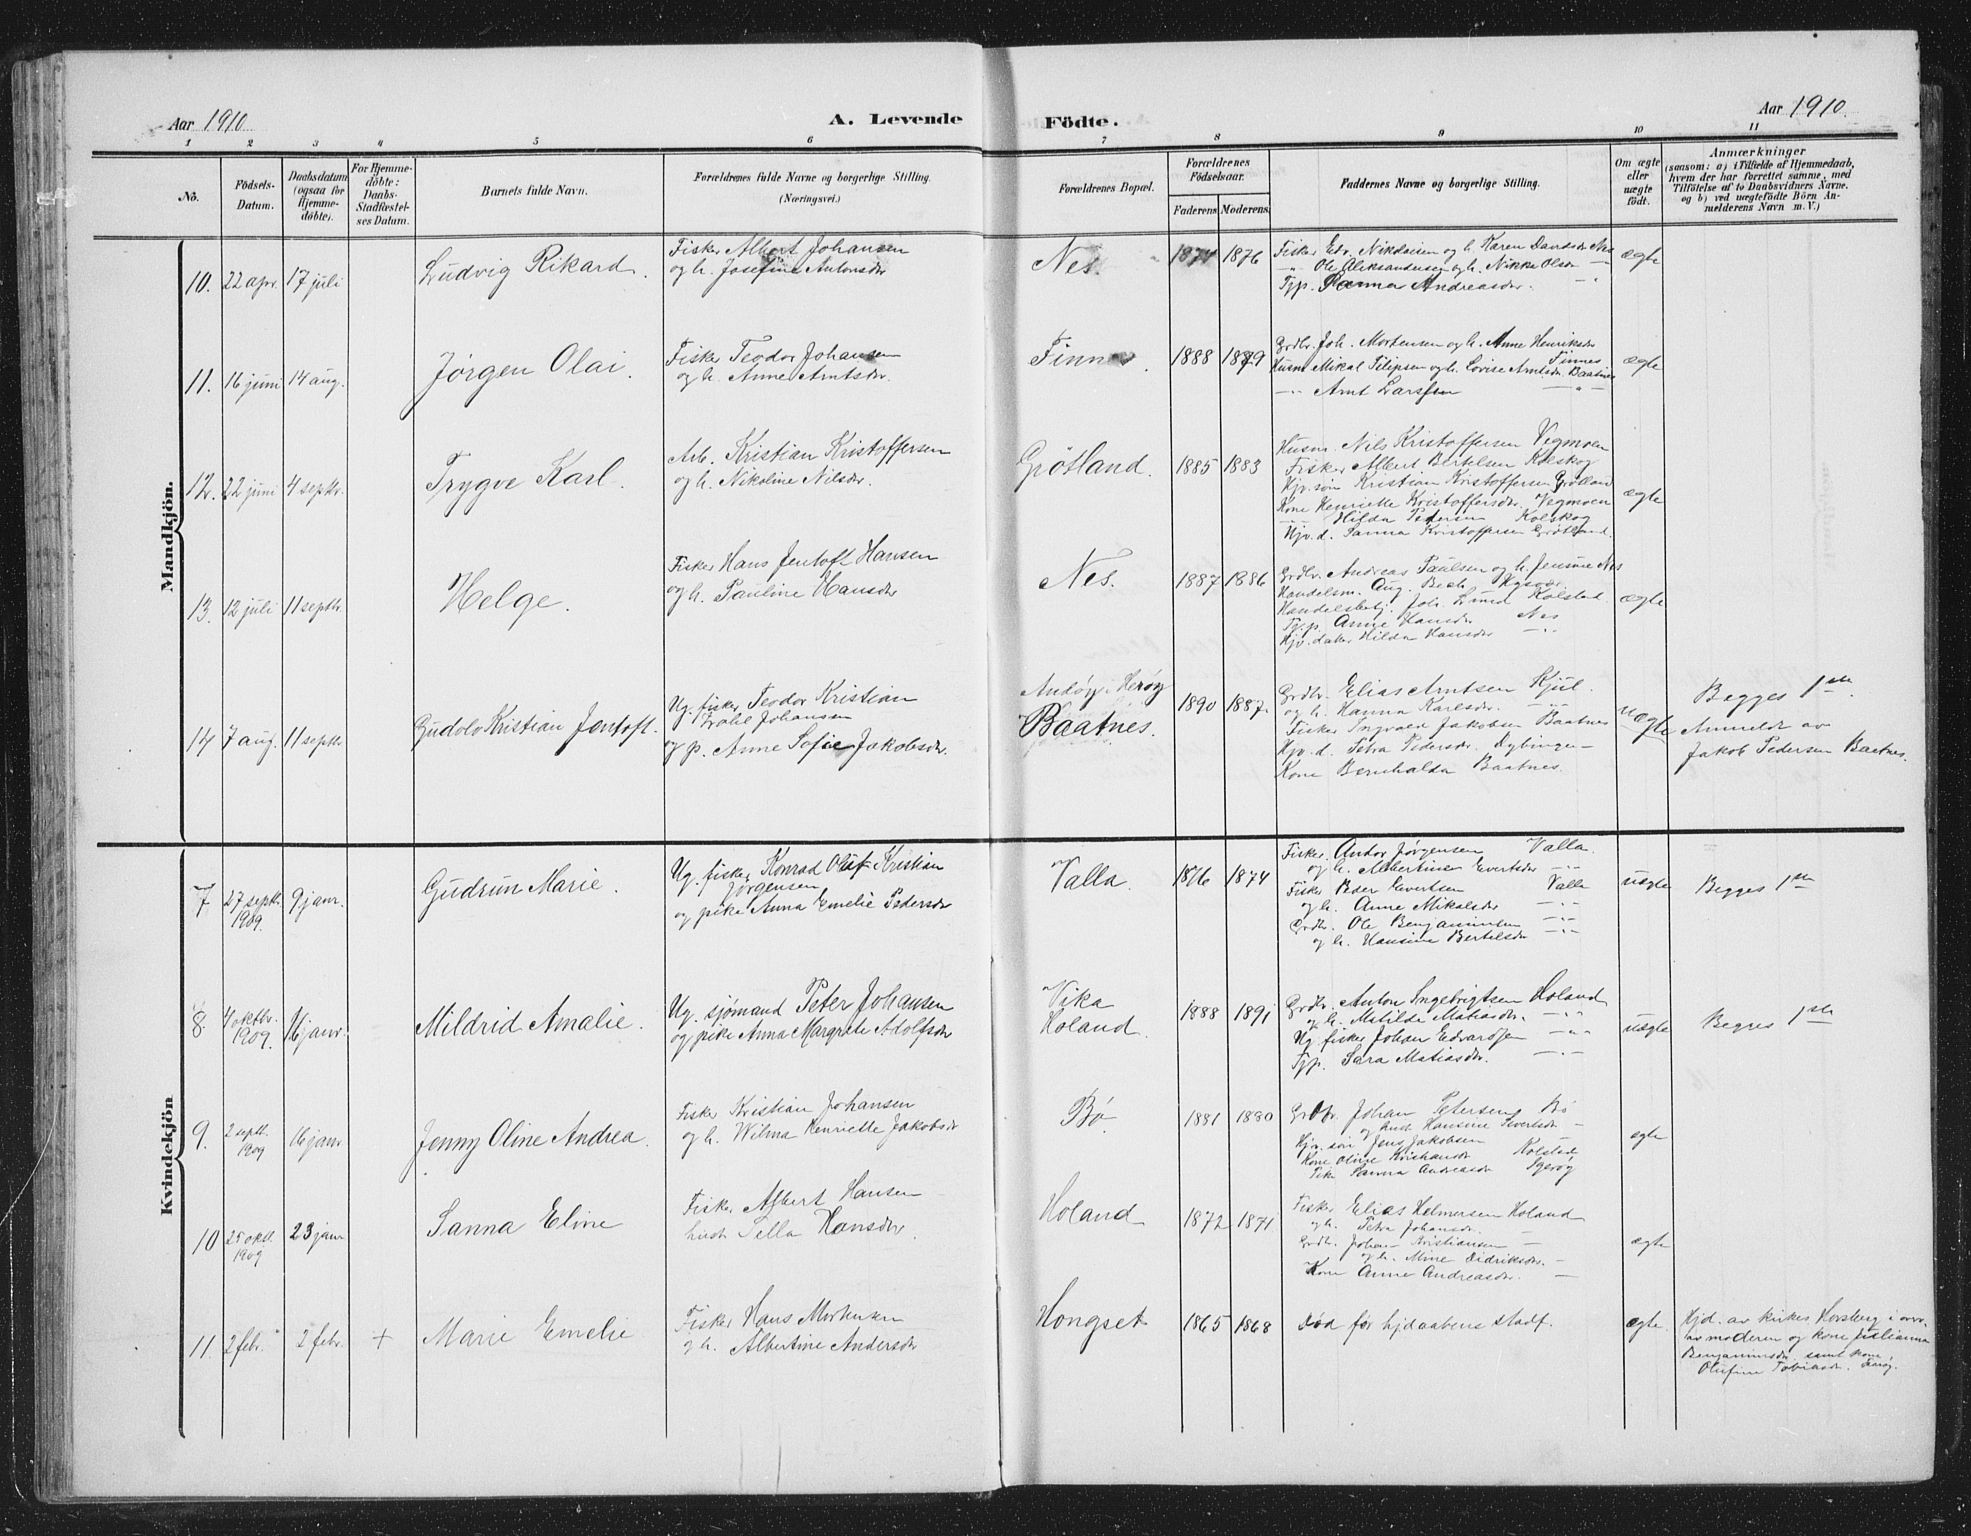 Aar 1910. A. Levende Födte. Aar 1910.
1 2 3 4 5 6 7 8 9 10 11
No.
Födsels-Datum.
Daabsdatum (ogsaa for Hjemme-döbte).
For Hjemme-döbte: Daabs Stadfestel-ses Datum.
Barnets fulde Navn.
Forældrenes fulde Navne og borgerlige Stilling. (Næringsvei.)
Forældrenes Bopæl.
Forældrenes Födselsaar.
Faderens Moderens.
Faddernes Navne og borgerlige Stilling.
Om ægte eller uægte födt.
Anmærkninger
(saasom: a) i Tilfælde af Hjemmedaab, hvem der har forrettet samme, med Tilföielse af to Daabsvidners Navne. og b) ved uægtefödte Börn Anmelderens Navn m. V.)
Mandkjön.
10. 22 apr. 17 juli Ludvig Rikard.
Fisker Albert Johansen
og h. Josefine Antonsdr
Nes. 1874 1876
Fisker Edv. Nikolaisen og h. Karen Davidsdr Nes
Ole Aleksandersen og h. Nikke Olsdr
Tjp. Sanna Andreasdr.
ægte
11. 16 juni 14 aug. Jørgen Olai.
Fisker Teodor Johansen
og h. Anne Arntsdr.
Finnes. 1888 1889
Grdbr. Joh. Mortensen og h. Anne Henriksdr Finnes
Husm Mikal Filipsen og h. Lovise Arntsdr. Baatnes
Arnt Larssen
ægte
12. 22 juni 4 septbr. Trygve Karl.
Arb. Kristian Kristoffersen
og h. Nikoline Nilsdr.
Grötland. 1885 1883
Husm. Nils Kristoffersen Vegmoen
Fisker Albert Bertelsen Kolskog
Hjv. søn Kristian Kristoffersen Grötland
Kone Henriette Kristoffersdr. Vegmoen
Hilda Pedersen Kolskog
Hjv. d. Sanna Kristoffersen Grötland.
ægte
13. 12 juli 11 septbr. Helge.
Fisker Hans Jentoft Hansen
og h. Pauline Hansdr
Nes. 1887 1886
Grdbr. Andreas Paulsen og h. Jensine Nes
Handelsm. Aug. Bech
Handelsbetj. Joh. Lund Kolstad.
Tj.p. Anne Hansdr Nes
Hjv. dater Hilda Hansdr
ægte
14 7 aug. 11 septbr Gudolv Kristian Jentoft.
Ug. fisker Teodor Kristian
Johansen
og p. Anne Sofie Jakobsdr.
Andöy. Herøy
Baatnes. 1890 1887.
Grdbr. Elias Arntsen Kjul.
og h. Hanna Karlsdr.
Fisker Ingvald Jakobsen Baatnes
Hjv. d. Petra Pedersdr.
Kone Bernhalda Baatnes.
uægte
Begges 1ste.
Anmeldt av
Jakob Pedersen Baatnes.
Kvindekjön
7 27 septbr. 1909. 9 janr. Gudrun Marie.
Ug. fisker Konrad Olaf Kristian
Jørgensen
og pike Anna Emelie Pedersdr
Valla. 1876 1874
Fisker. Andor Jørgensen Valla.
og h. Albertine Evertsdr
Fisker Peder Evertsen Valla
og h. Anne Mikalsdr
Grdbr. Ole Benjaminsen
og h. Hansine Bertelsdr
uægte
Begges 1ste
8 4 oktbr. 1909. 16 janr. Mildrid Amalie.
Ug. sjømand Peter Johansen
og pike Anna Margrete Adolfsdr
Vika
Holand. 1888 1891
Grdbr. Anton Ingebrigtsen Holand
og h. Metilde Matiasdr.
Ug. fisker Johan Edvardsen
Tjp. Sara Matiasdr.
uægte
Begges 1ste
9. 2 septbr. 1909 16 janr Jenny Oline Andrea.
Fisker Kristian Johansen
og h. Wilma Henriette Jakobsdr
Bø 1881 1880
Grdbr. Johan Petersen Bø
og h. Hansine Sivertsdr
Hjv. søn Jens Jakobsen
Kone Oline Kristiansdr Kolstad
Pike Sanna Andreasdr
ægte
10 25 okt. 1909 23 janr Sanna Eline
Fisker Albert Hansen
hustr Sella Hansdr.
Holand 1872 1871
Fisker Elias Helmersen Holand
og h. Petra Johansdr.
Grdbr. Johan Kristiansen
og h. Mine Didriksdr.
Kone Anne Andreasdr.
ægte
11. 2 febr. 2 febr. + Marie Emelie
Fisker Hans Mortensen
og h. Albertine Andersdr
Hongset 1865 1868
Død før hjdaabens stadf.
ægte.
Hjd. av kirkes. Horsberg i overv.
av moderen og kone Julianna
Benjaminsdr. samt kone
Olufine Tobiasdr.